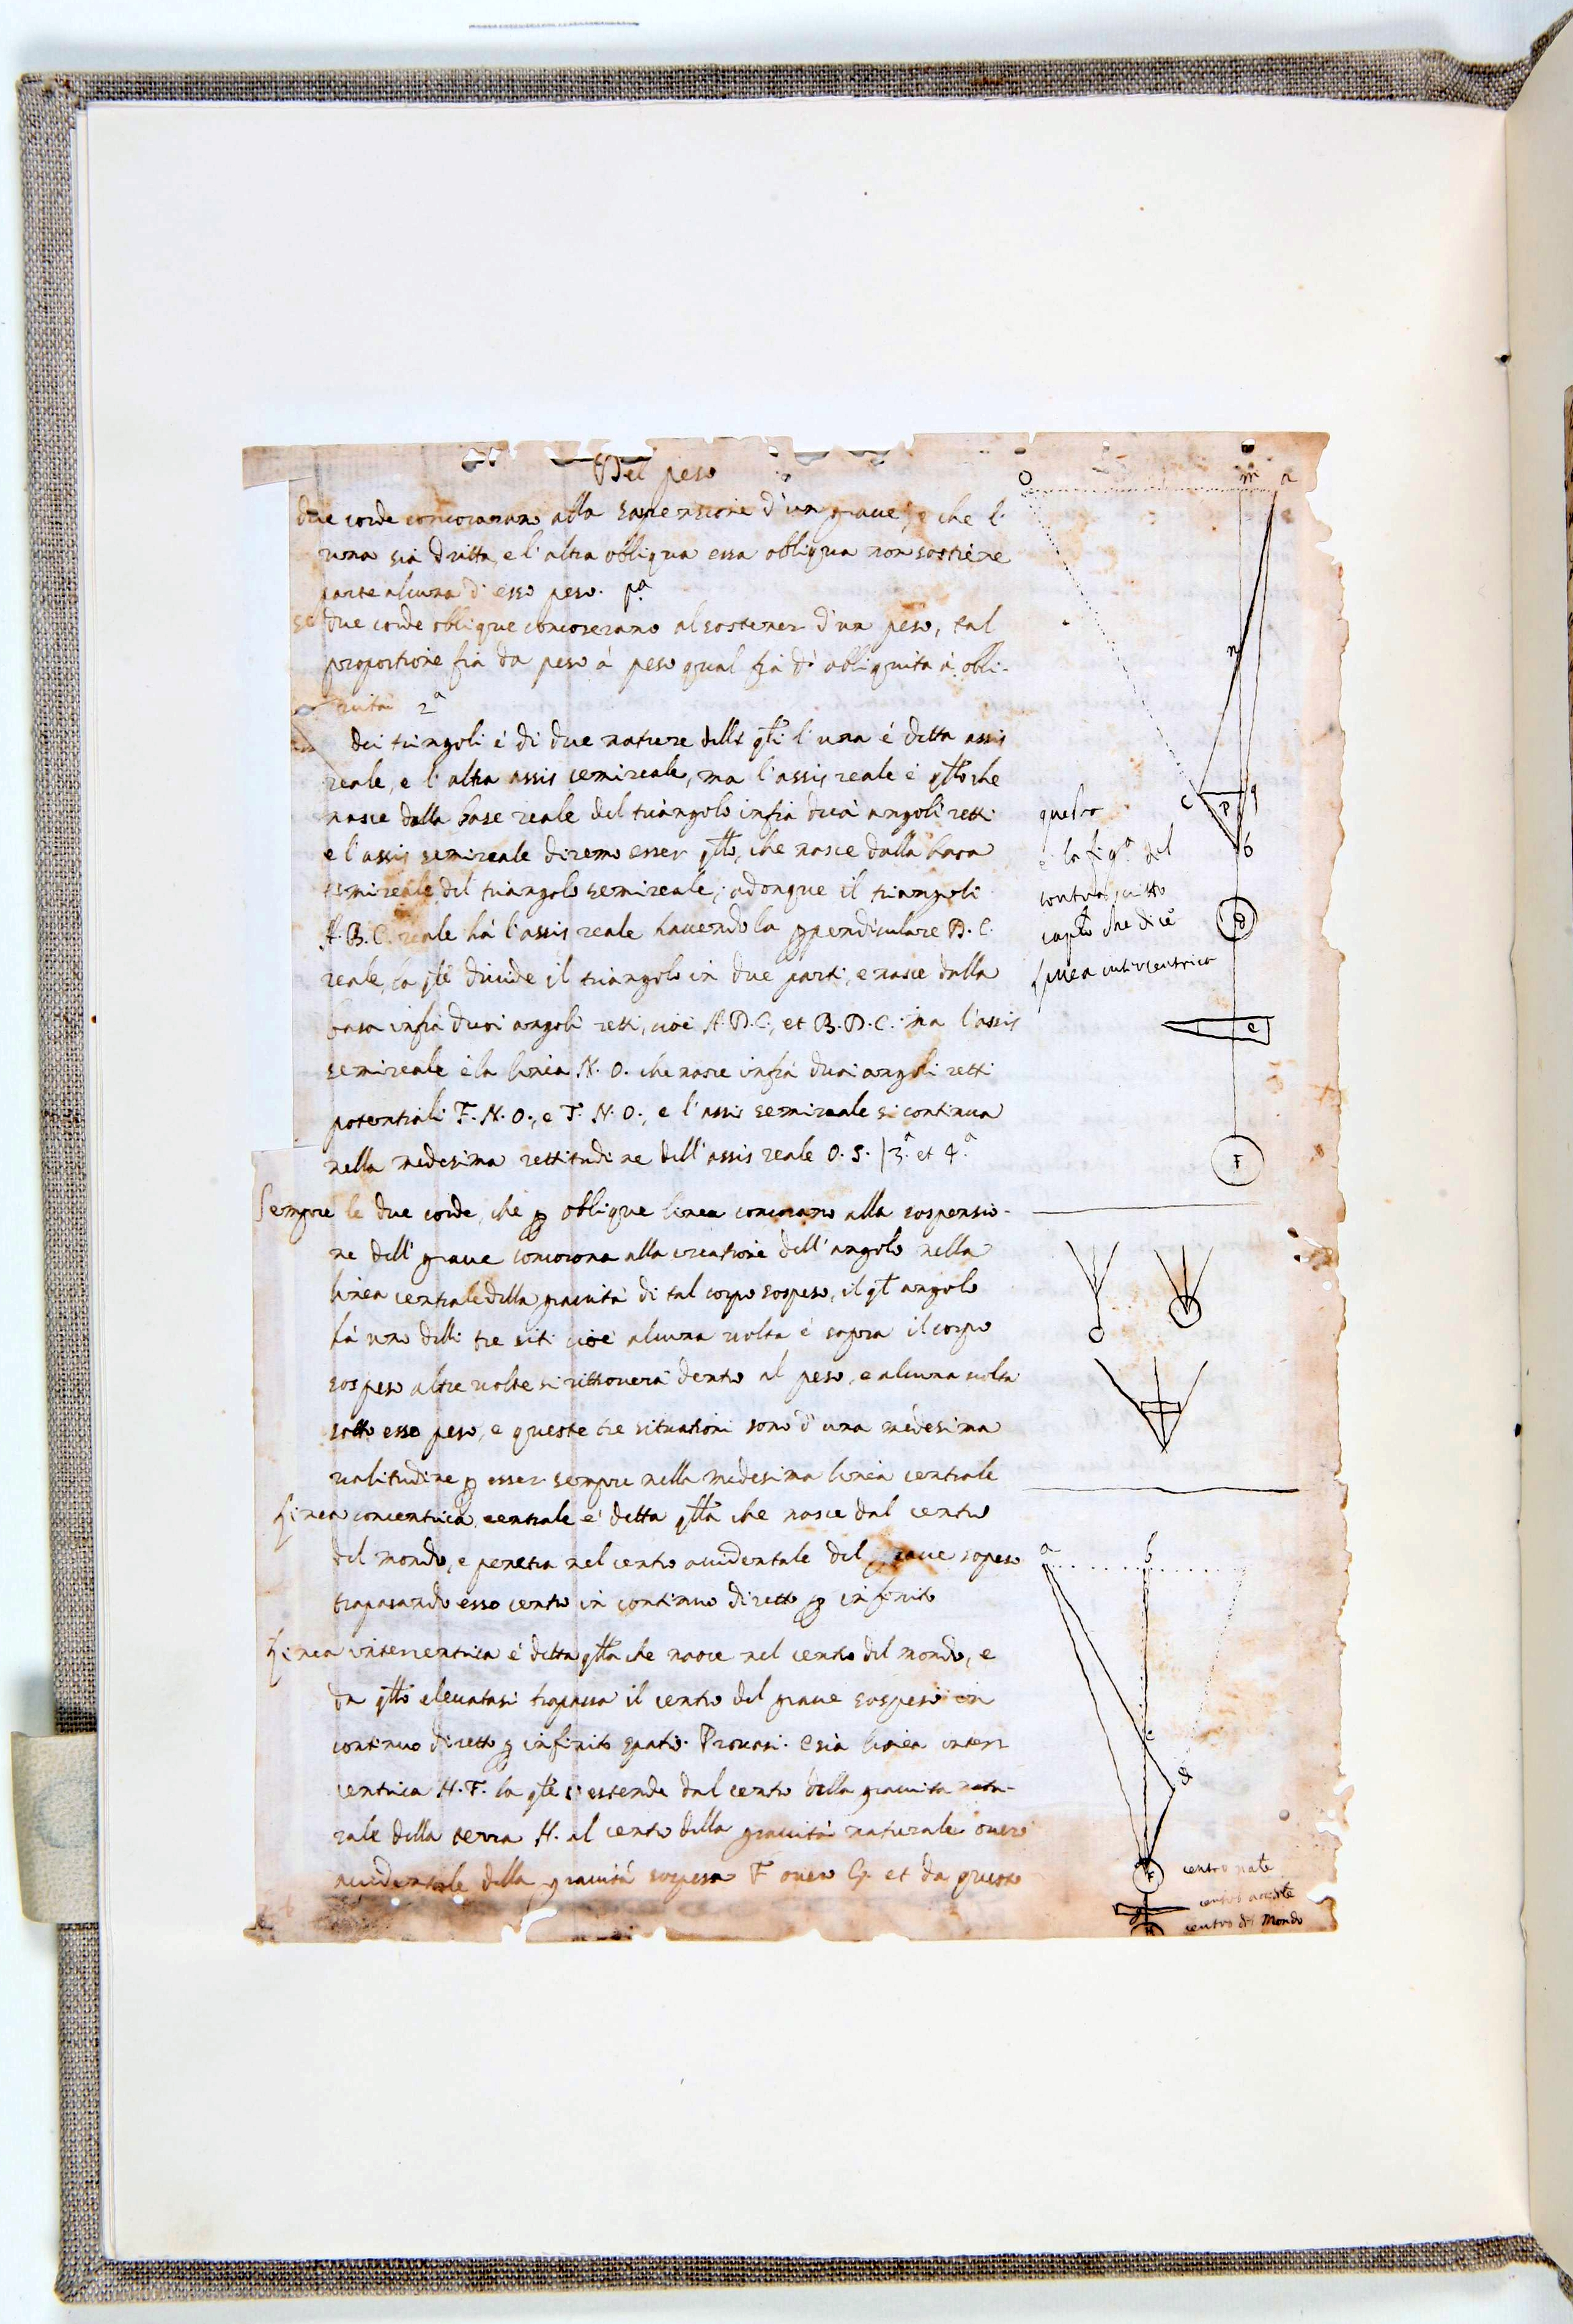 Del peso
due corde concorerano alla suspensione d'un grave, e che l'
una sia dritta, e l'altra obbliqua essa obbliqua non sostiene
parte alcuna d'esso peso. pª
se due corde oblique concorerano al sostener d'un peso, tal
proportione fia da peso á peso qual fia d'obbliquita á obli-
quita 2ª
Dei triangoli é di due nature delle qli l'una é detta assis
reale, e l'altra assis semireale, ma l'assis reale é qllo che
nasce dalla base reale del triangolo infra duoi angoli retti
e l'assis semireale diremo esser qllo, che nasce dalla basa
semireale del triangolo semireale; adonque il triangoli
A.B.C. reale há l'assis reale havendo la ppendiculare D.C.
reale, la qle divide il triangolo in due parti, e nasce dalla
basa infra duoi angoli retti, cioé A.D.C., et B.D.C. ma l'assis
semireale é la linea N.O. che nasce infra duoi angoli retti
potentiali F.N.O., e T.N.O., e l'assis semireale si continua
nella medesima rettitudine dell'assis reale O.S. | 3ª et 4ª
Sempre le due corde, che p oblique linea concorano alla sospensio-
ne dell'grave concorona alla creatione dell'angolo nella
linea centrale della gravitá di tal corpo sospeso, il qt angolo
há uno delli tre siti cioé alcuna volta é sopra il corpo
sospeso altre volte si ritrovera dentro al peso, e alcuna volta
sotto esso peso, e queste tre situationi sono d'una medesima
valitudine p esser sempre nella medesima linea centrale
Linea concentrica centrale é detta qlla che nasce dal centro
del mondo, e penetra nel centro accidentale del grave sopeso
trapasando esso centro in continuo diretto p infinito
Linea intercentrica é detta qlla che nasce nel centro del mondo, e
da qllo elevatasi trapassa il centro del grave sospeso in
continuo diretto p infinito spatio. Provasi. e sia linea inter
centrica H.F. la qle s'estende dal centro della gravita natu-
rale della terra H. al centro della gravitá naturale overo
accidentale della gravitá sospesa F over G. et da questo
O m a
n
c p q
b
questo
é la figª del
contrascritto
caplo che dice
linea intercentrica
d
e
F
a b
c
d
F
centro nate
centro accidte
centro del Mondo